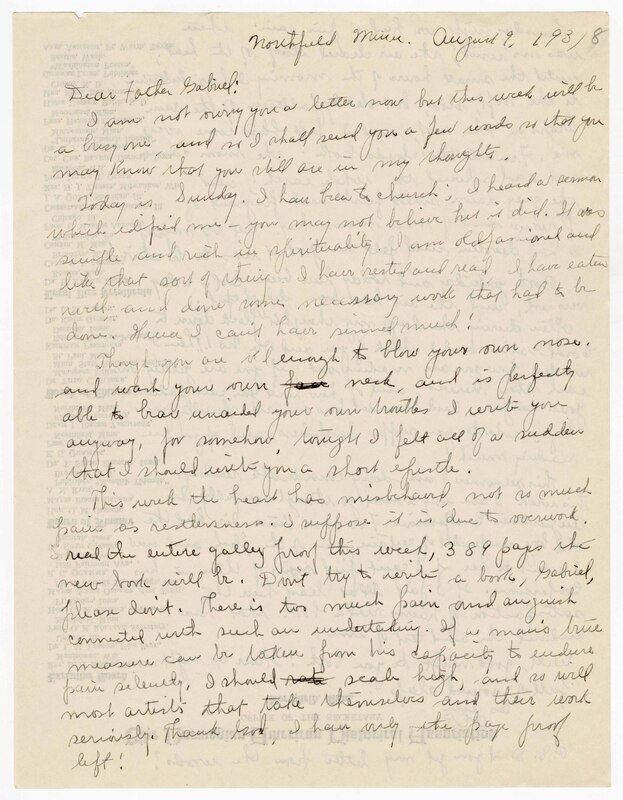 Northfield Minn. August 9, 1931/8
Dear Father Gabriel:
I am not owing you a letter now but this week will be
a busy one, and so I shall send you a few words so that you
may know that you still are in my thoughts.
Today is Sunday. I have been to church; I heard a sermon
which edified me – you may not believe but it did. It was
simple and rich in spirituality. I am oldfashioned and
like that sort of thing. I have rested and read. I have eaten
well and done some necessary work that had to be
done. Hence I can't have sinned much!
Though you are old enough to blow your own nose.
and wash your own face neck, and is perfectly
able to bear unaided your own troubles I write you
anyway, for somehow tonight I felt all of a sudden
that I should write you a short epistle.
This week the heart has misbehaved, not so much
pain as restlessness. I suppose it is due to overwork.
read the entire galley proof this week, 389 pages the
new book will be. Don't try to write a book, Gabriel,
please don't. There is too much pain and anguish
connected with such an undertaking. If a man's true
measure can be taken from his capacity to endure
pain silently, I should rate scale high, and so will
most artists that take themselves and their work
seriously. Thank God, I have only the page proof
left!